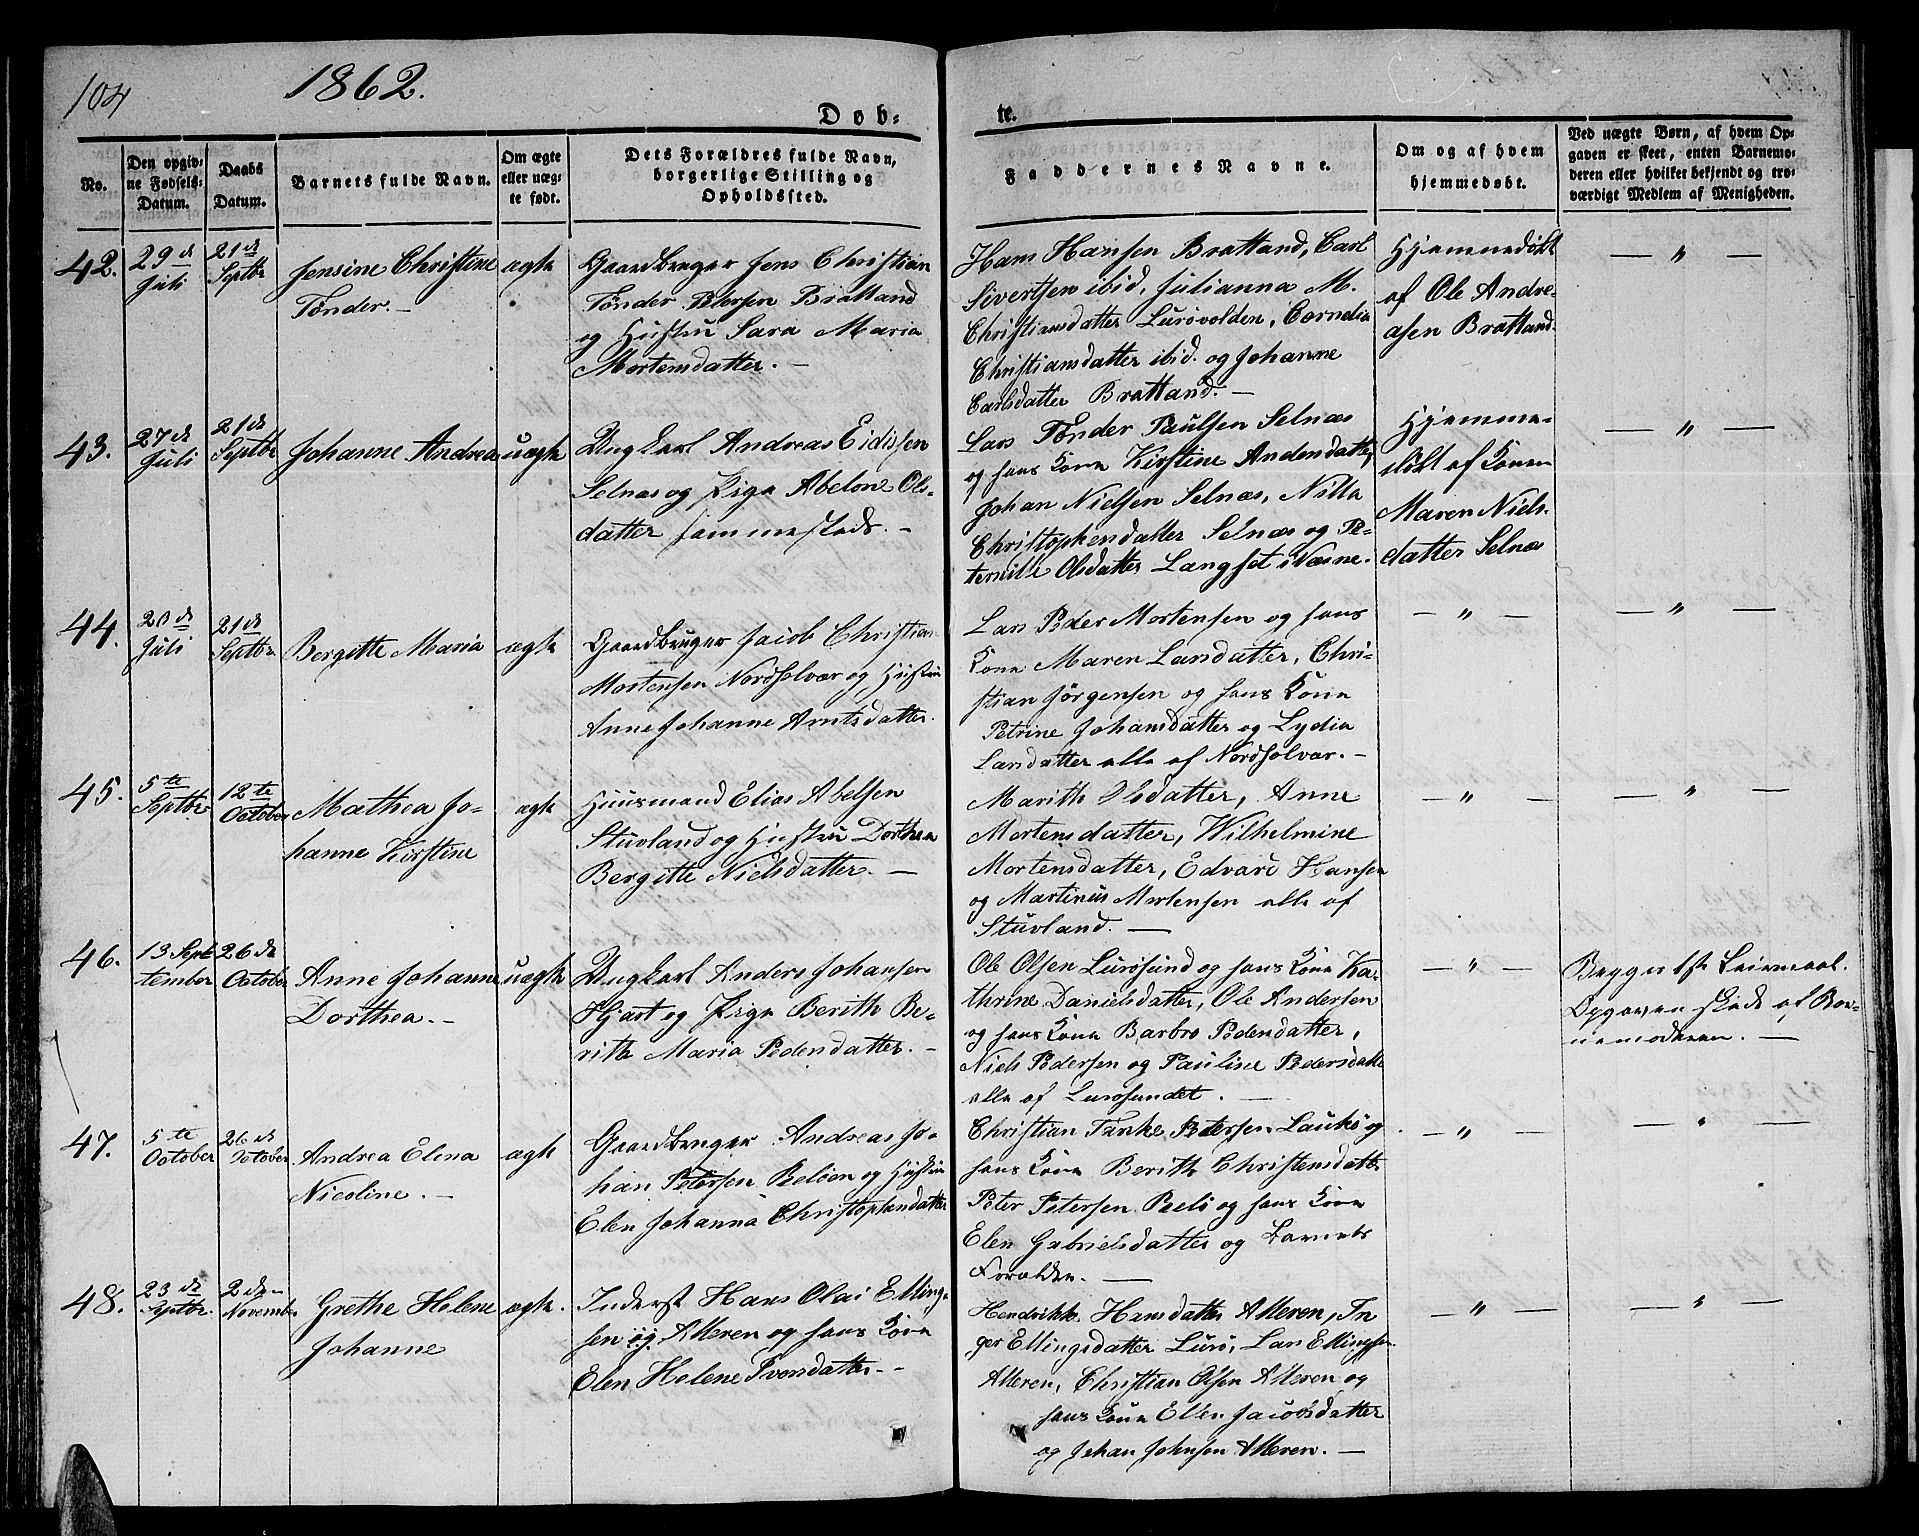 104
1862.
Døb-
te.
No.
Den opgiv-
ne Fødsels-
Datum.
Daabs
Datum.
Barnets fulde Navn.
Om ægte
eller uæg-
te født.
Dets Forældres fulde Navn,
borgerlige Stilling og
Opholdssted.
Faddernes Navne.
Om og af hvem
hjemmedøbt.
Ved uægte Børn, af hvem Op-
gaven er skeet, enten Barnemo-
deren eller hvilket bekjendt og tro-
værdige Medlem af Menigheden.
42.
29 d
Juli
21 d
Septbr
Jensine Christine
Tønder. -
ægte
Gaardbruger Jens Christian
Tønder Petersen Bratland
og Hustru Sara Maria
Mortensdatter. -
Hans Hansen Bratland, Carl
Sivertsen ibid, Julianna M.
Christiansdatter Lurøvolden, Cornelia
Christiansdatter ibid. og Johanne
Carlsdatter Bratland. -
Hjemmedøbt
af Ole Andre-
asen Bratland.
— " —
43.
27 d
Juli
21 d
Septbr
Johanne Andrea
uægte
Ungkarl Andreas Eidissen
Selnæs og Pige Abelone Ols-
datter sammesteds. -
Lars Tønder Paulsen Selnæs
og hans Kone Kirstine Andersdatter,
Johan Nielsen Selnæs, Nilla
Christophersdatter Selnæs og Pe-
ternille Olsdatter Langset i Næsne.
Hjemme-
døbt af Konen
Maren Niels-
datter Selnæs
— " —
44.
23 d
Juli
21 d
Septbr.
Bergitte Maria
ægte
Gaardbruger Jacob Christian
Mortensen Nordsolvær og Hustru
Anne Johanne Arntsdatter.
Lars Peder Mortensen og hans
Kone Maren Larsdatter, Chri-
stian Jørgensen og hans Kone
Petrine Johansdatter og Lydia
Larsdatter alle af Nordsolvær. -
— " —
— " —
45.
5te
Septbr
12te
October
Mathea Jo-
hanne Kirstine
ægte
Huusmand Elias Abelsen
Stuvland og Hustru Dorthea
Bergitte Nielsdatter. —
Marith Olsdatter, Anne
Mortensdatter, Wilhelmine
Mortensdatter, Edvard Hansen
og Martinus Mortensen alle af
Stuvland. —
— " —
— " —
46.
13 Sept
tember
26 d
October
Anne Johanne
Dorthea. -
uægte
Ungkarl Anders Johansen
Hjart og Pige Berith Be-
rithe Maria Pedersdatter. -
Ole Olsen Lurøsund og hans Kone Ka-
thrine Danielsdatter, Ole Andersen
og hans Kone Barbro Pedersdatter,
Niels Pedersen og Pauline Pedersdatter
alle af Lurøsundet. —
— " —
Begges 1ste Leiermaal.
Opgaven skede af Bar-
nemoderen. —
47.
5te
October
26 d
October
Andrea Elena
Nicoline. -
ægte
Gaardbruger Andreas Jo-
han Petersen Reløen og Hustru
Elen Johanna Christophersdatter
Christian Petersen Laukø og
hans Kone Berith Christensdatter
Peter Petersen Relø og hans Kone
Elen Gabrielsdatter og Barnets
Forældre. —
— " —
— " —
48.
23 d
Septbr.
2 den
Novembr
Grethe Helene
Johanne
ægte.
Inderst Hans Olai Elling-
sen Alteren og hans Kone
Elen Helene Iversdatter. -
Hendrikke Hansdatter Alteren, In
ger Ellingsdatter Lurø, Lars Ellingsen
Alteren, Christian Olsen Alteren og
hans Kone Ellen Jacobsdatter
og Johan Johnsen Alteren. —
— " —
— " —